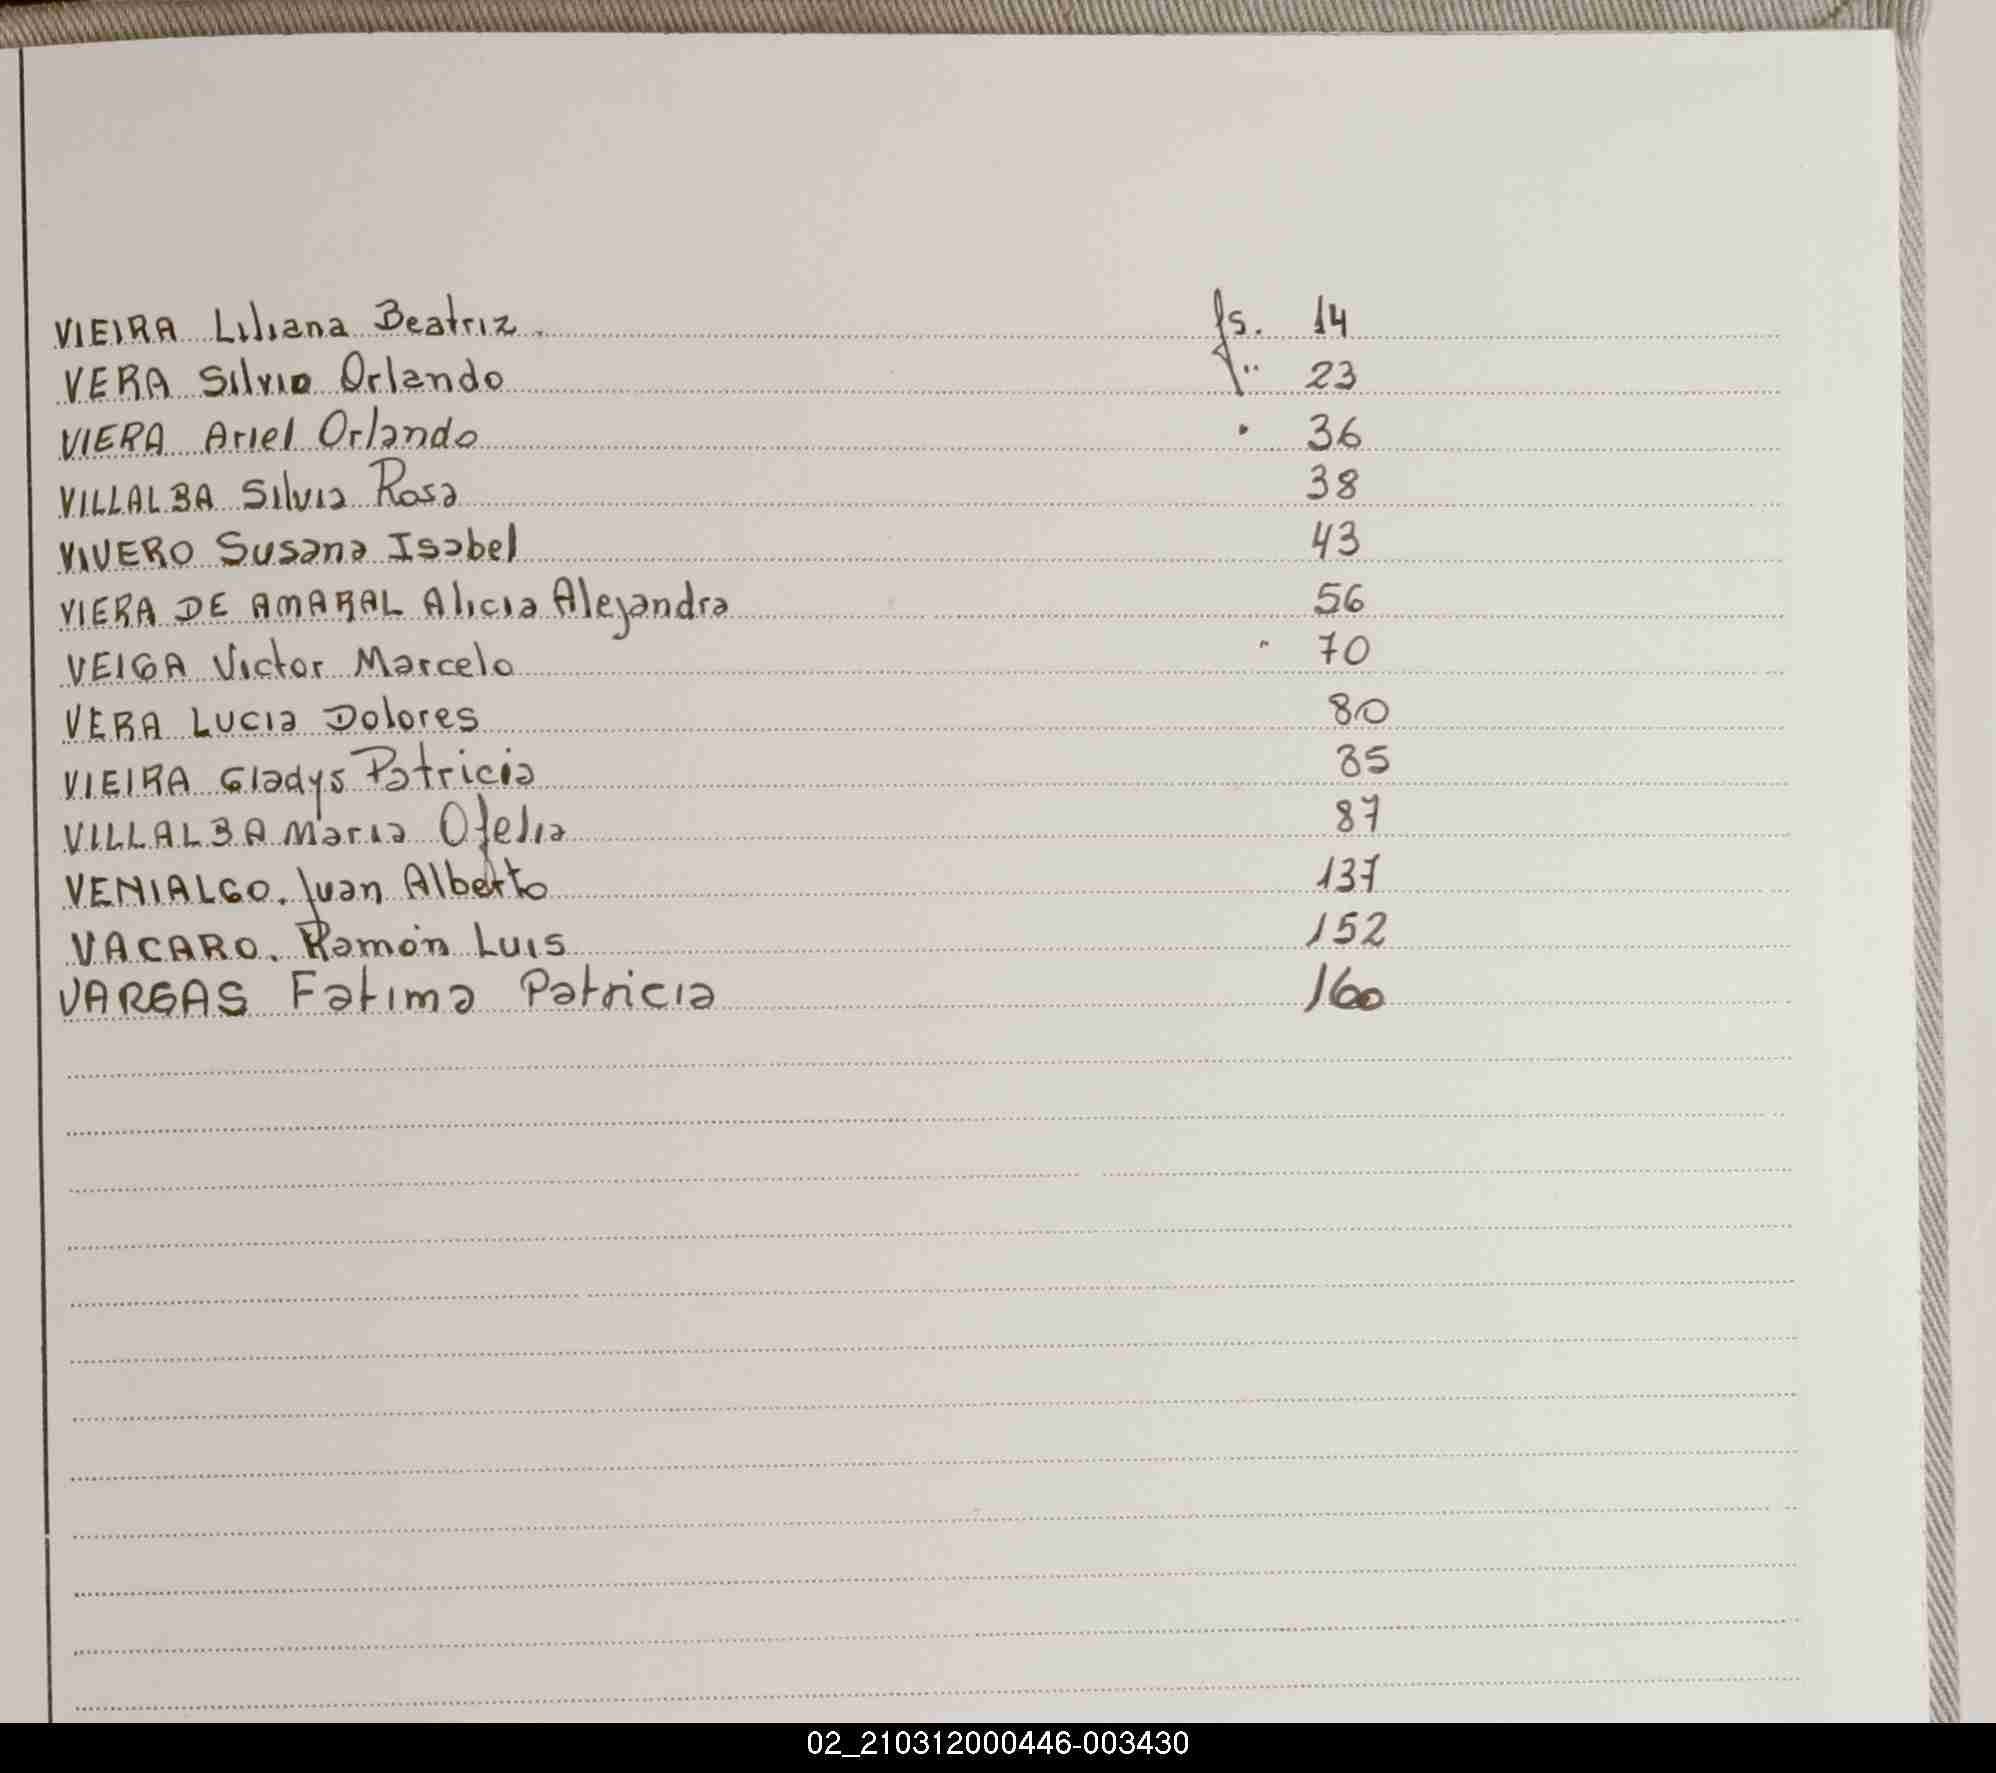 VIEIRA Liliana Beatriz. fs. 14
VERA Silvio Orlando " 23
VIERA Ariel Orlando " 36
VILLALBA Silvia Rosa 38
VIVERO Susana Isabel 43
VIERA DE AMARAL Alicia Alejandra 56
VEIGA Victor Marcelo " 70
VERA Lucia Dolores 80
VIEIRA Gladys Patricia 85
VILLALBA Maria Ofelia 87
VENIALGO. Juan Alberto 137
VACARO. Ramón Luis 152
VARGAS Fatima Patricia 160
02_210312000446-003430